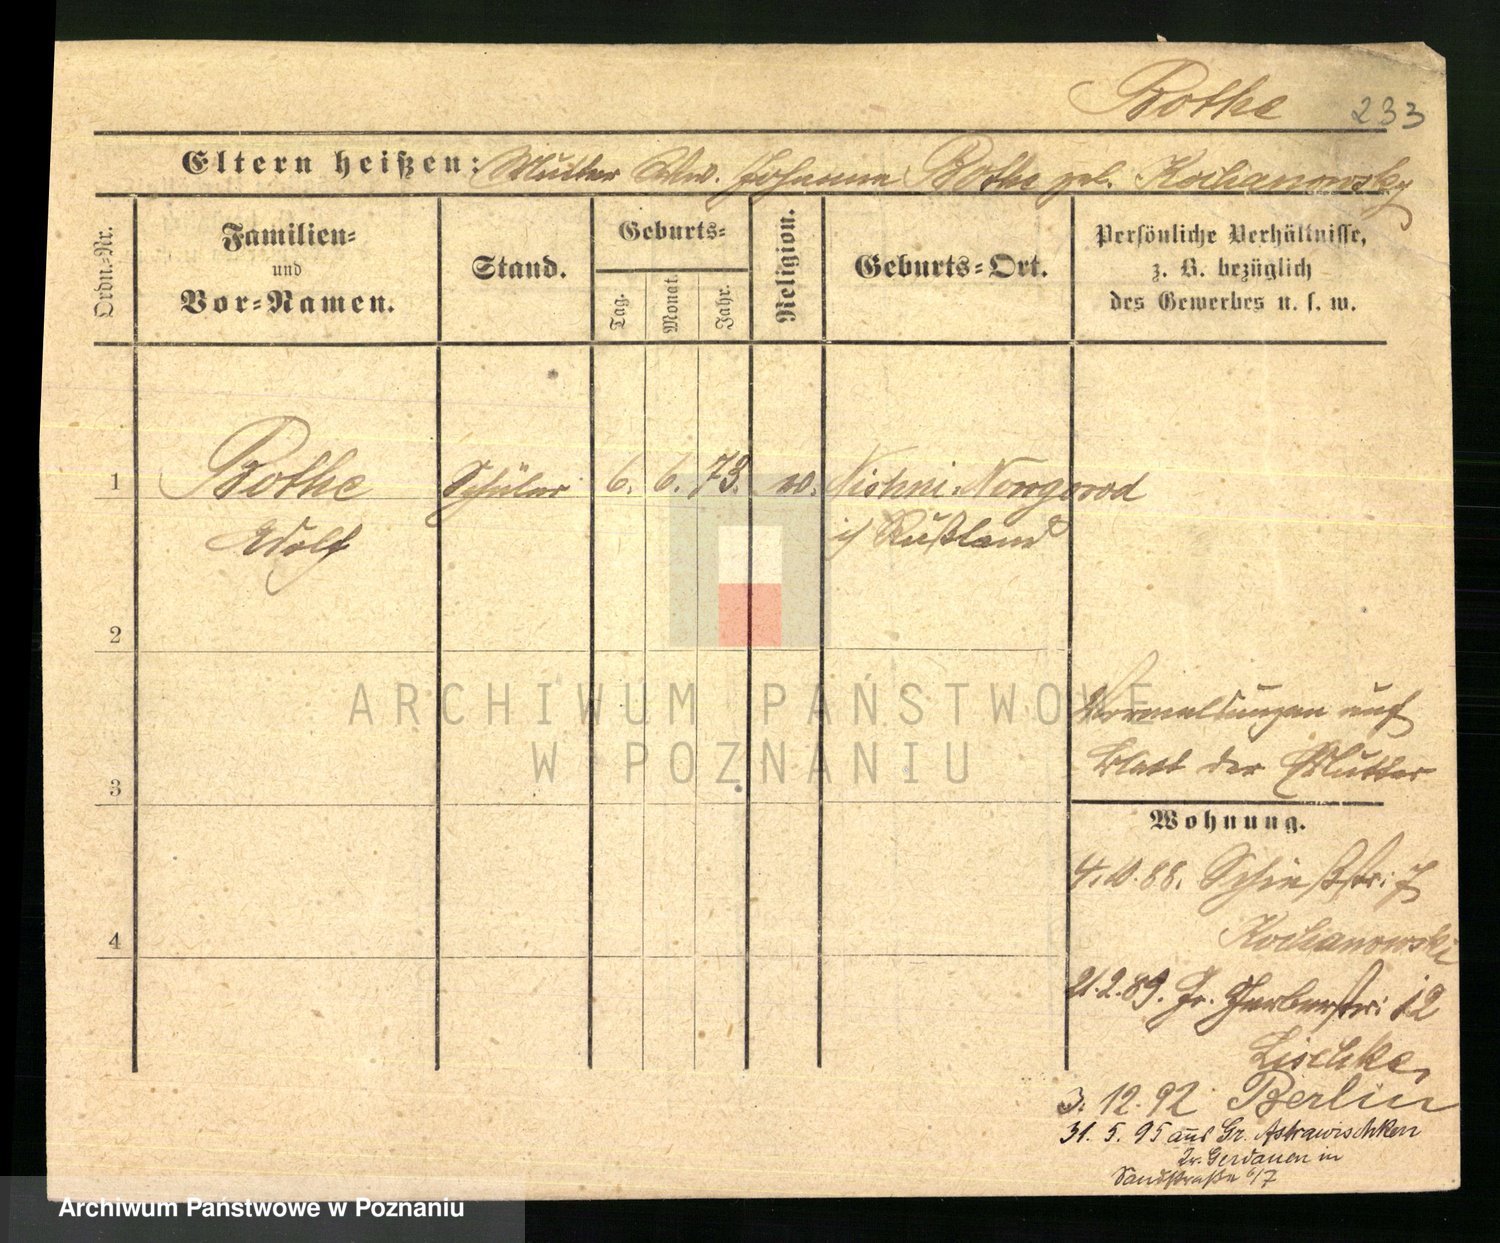 Bothe 233
Eltern heißen: Mutter Ww. Johanna Bothe geb. Kochanowsky
Ordn.-Nr.
Familien-
und
Vor-Namen.
Stand.
Geburts-
Tag.
Monat.
Jahr.
Religion.
Geburts-Ort.
Persönliche Verhältnisse,
z. B. bezüglich
des Gewerbes u. s. w.
1 Bothe Schüler 6. 6. 73. Nischni-Nowgorod
Adolf Rußland
2
ARCHIWUM PAŃSTWOWE
W POZNANIU
Vormeldungen auf
Blatt der Mutter
3
Wohnung.
4.10.88. Schießstr. 7
Kochanowski
4
21.2.89. Gr. Gerberstr. 12
Lischke,
3. 12. 92 Berlin
31. 5. 95 aus Gr. Astrawischken
Kr. Gerdauen in
Sandstraße 6/7
Archiwum Państwowe w Poznaniu